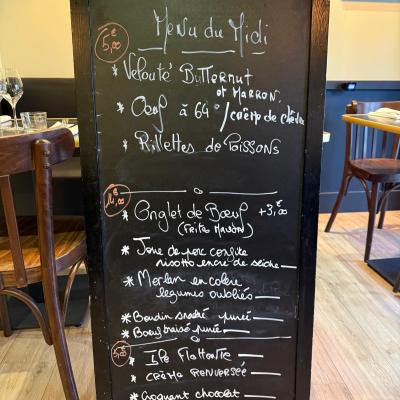 Menu du Midi
5,00 €
* Velouté Butternut
et MARRON
* Oeuf à 64° / crème de
* Rillettes de Poissons
€
* Onglet de Bœuf +3,00
(Frites Maison)
* Joue de porc confite
risotto encre de seiche
* Merlan en colère
légumes oubliés
* Boudin purée
* Boeuf braisé purée
5,00
* Ile Flottante
* CRÈME RENVERSÉE
* Croquant chocolat